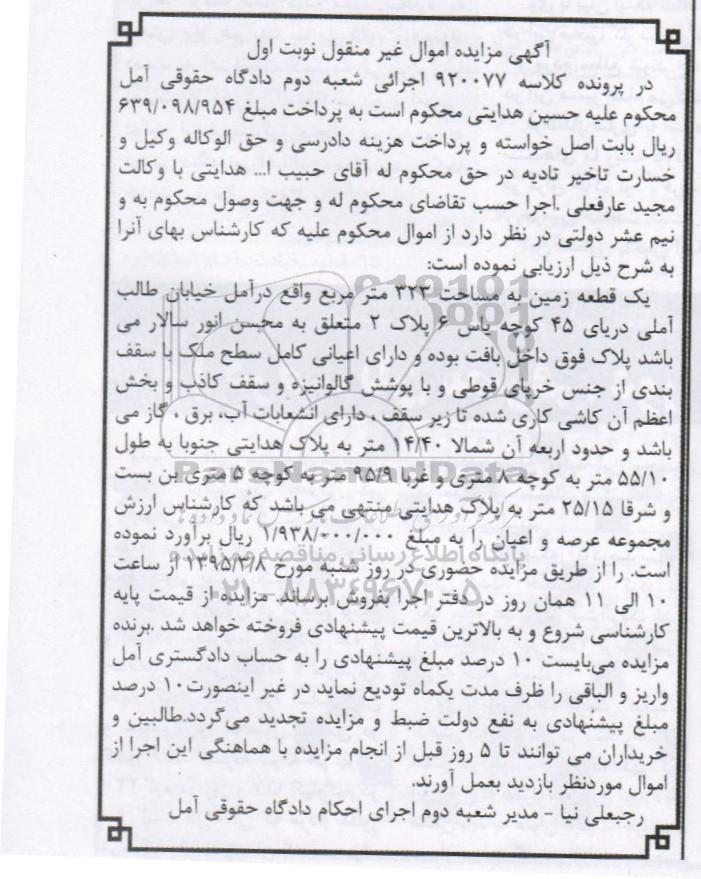 آگهی مزایده اموال غیر منقول نوبت اول
در پرونده کلاسه ۹۲۰۰۷۷ اجرائی شعبه دوم دادگاه حقوقی آمل
محکوم علیه حسین هدایتی محکوم است به پرداخت مبلغ ۶۳۹/۰۹۸/۹۵۴
ریال بابت اصل خواسته و پرداخت هزینه دادرسی و حق الوکاله وکیل و
خسارت تاخیر تادیه در حق محکوم له آقای حبیب ا... هدایتی با وکالت
مجید عارفعلی .اجرا حسب تقاضای محکوم له و جهت وصول محکوم به و
نیم عشر دولتی در نظر دارد از اموال محکوم علیه که کارشناس بهای آنرا
به شرح ذیل ارزیابی نموده است:
یک قطعه زمین به مساحت ۳۲۳ متر مربع واقع درآمل خیابان طالب
آملی دریای ۴۵ کوچه یاس ۶ پلاک ۲ متعلق به محسن انور سالار می
باشد پلاک فوق داخل بافت بوده و دارای اعیانی کامل سطح ملک با سقف
بندی از جنس خرپای قوطی و با پوشش گالوانیزه و سقف کاذب و بخش
اعظم آن کاشی کاری شده تا زیر سقف ، دارای انشعابات آب، برق ، گاز می
باشد و حدود اربعه آن شمالا ۱۴/۴۰ متر به پلاک هدایتی جنوبا به طول
۵۵/۱۰ متر به کوچه ۸ متری و غربا ۹۵/۹ متر به کوچه ۵ متری بن بست
و شرقا ۲۵/۱۵ متر به پلاک هدایتی منتهی می باشد که کارشناس ارزش
مجموعه عرصه و اعیان را به مبلغ ۱/۹۳۸/۰۰۰/۰۰۰ ریال برآورد نموده
است. را از طریق مزایده حضوری در روز شنبه مورخ ۱۳۹۵/۳/۸ از ساعت
۱۰ الی ۱۱ همان روز در دفتر اجرا بفروش برساند. مزایده از قیمت پایه
کارشناسی شروع و به بالاترین قیمت پیشنهادی فروخته خواهد شد .برنده
مزایده می‌بایست ۱۰ درصد مبلغ پیشنهادی را به حساب دادگستری آمل
واریز و الباقی را ظرف مدت یکماه تودیع نماید در غیر اینصورت۱۰ درصد
مبلغ پیشنهادی به نفع دولت ضبط و مزایده تجدید می‌گردد.طالبین و
خریداران می توانند تا ۵ روز قبل از انجام مزایده با هماهنگی این اجرا از
اموال موردنظر بازدید بعمل آورند
رجبعلی نیا - مدیر شعبه دوم اجرای احکام دادگاه حقوقی آمل
ParsNamadData
پایگاه اطلاع رسانی مناقصه و مزایده
۰۲۱-۸۸۳۴۹۶۷۰-۵